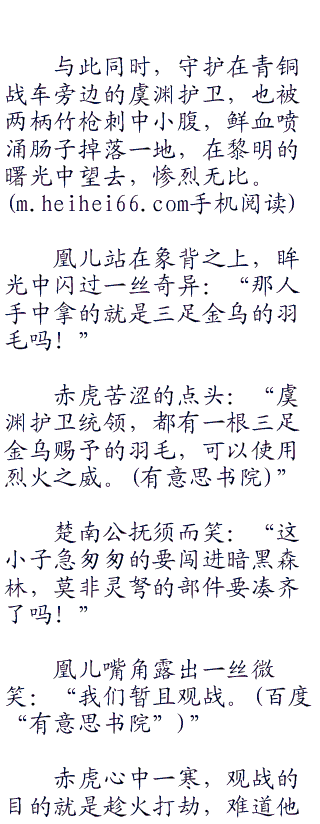 与此同时，守护在青铜
战车旁边的虞渊护卫，也被
两柄竹枪刺中小腹，鲜血喷
涌肠子掉落一地，在黎明的
曙光中望去，惨烈无比。
(m.heihei66.com手机阅读)
凰儿站在象背之上，眸
光中闪过一丝奇异：“那人
手中拿的就是三足金乌的羽
毛吗！”
赤虎苦涩的点头：“虞
渊护卫统领，都有一根三足
金乌赐予的羽毛，可以使用
烈火之威。(有意思书院)”
楚南公抚须而笑：“这
小子急匆匆的要闯进暗黑森
林，莫非灵弩的部件要凑齐
了吗！”
凰儿嘴角露出一丝微
笑：“我们暂且观战。(百度
“有意思书院”)”
赤虎心中一寒，观战的
目的就是趁火打劫，难道他